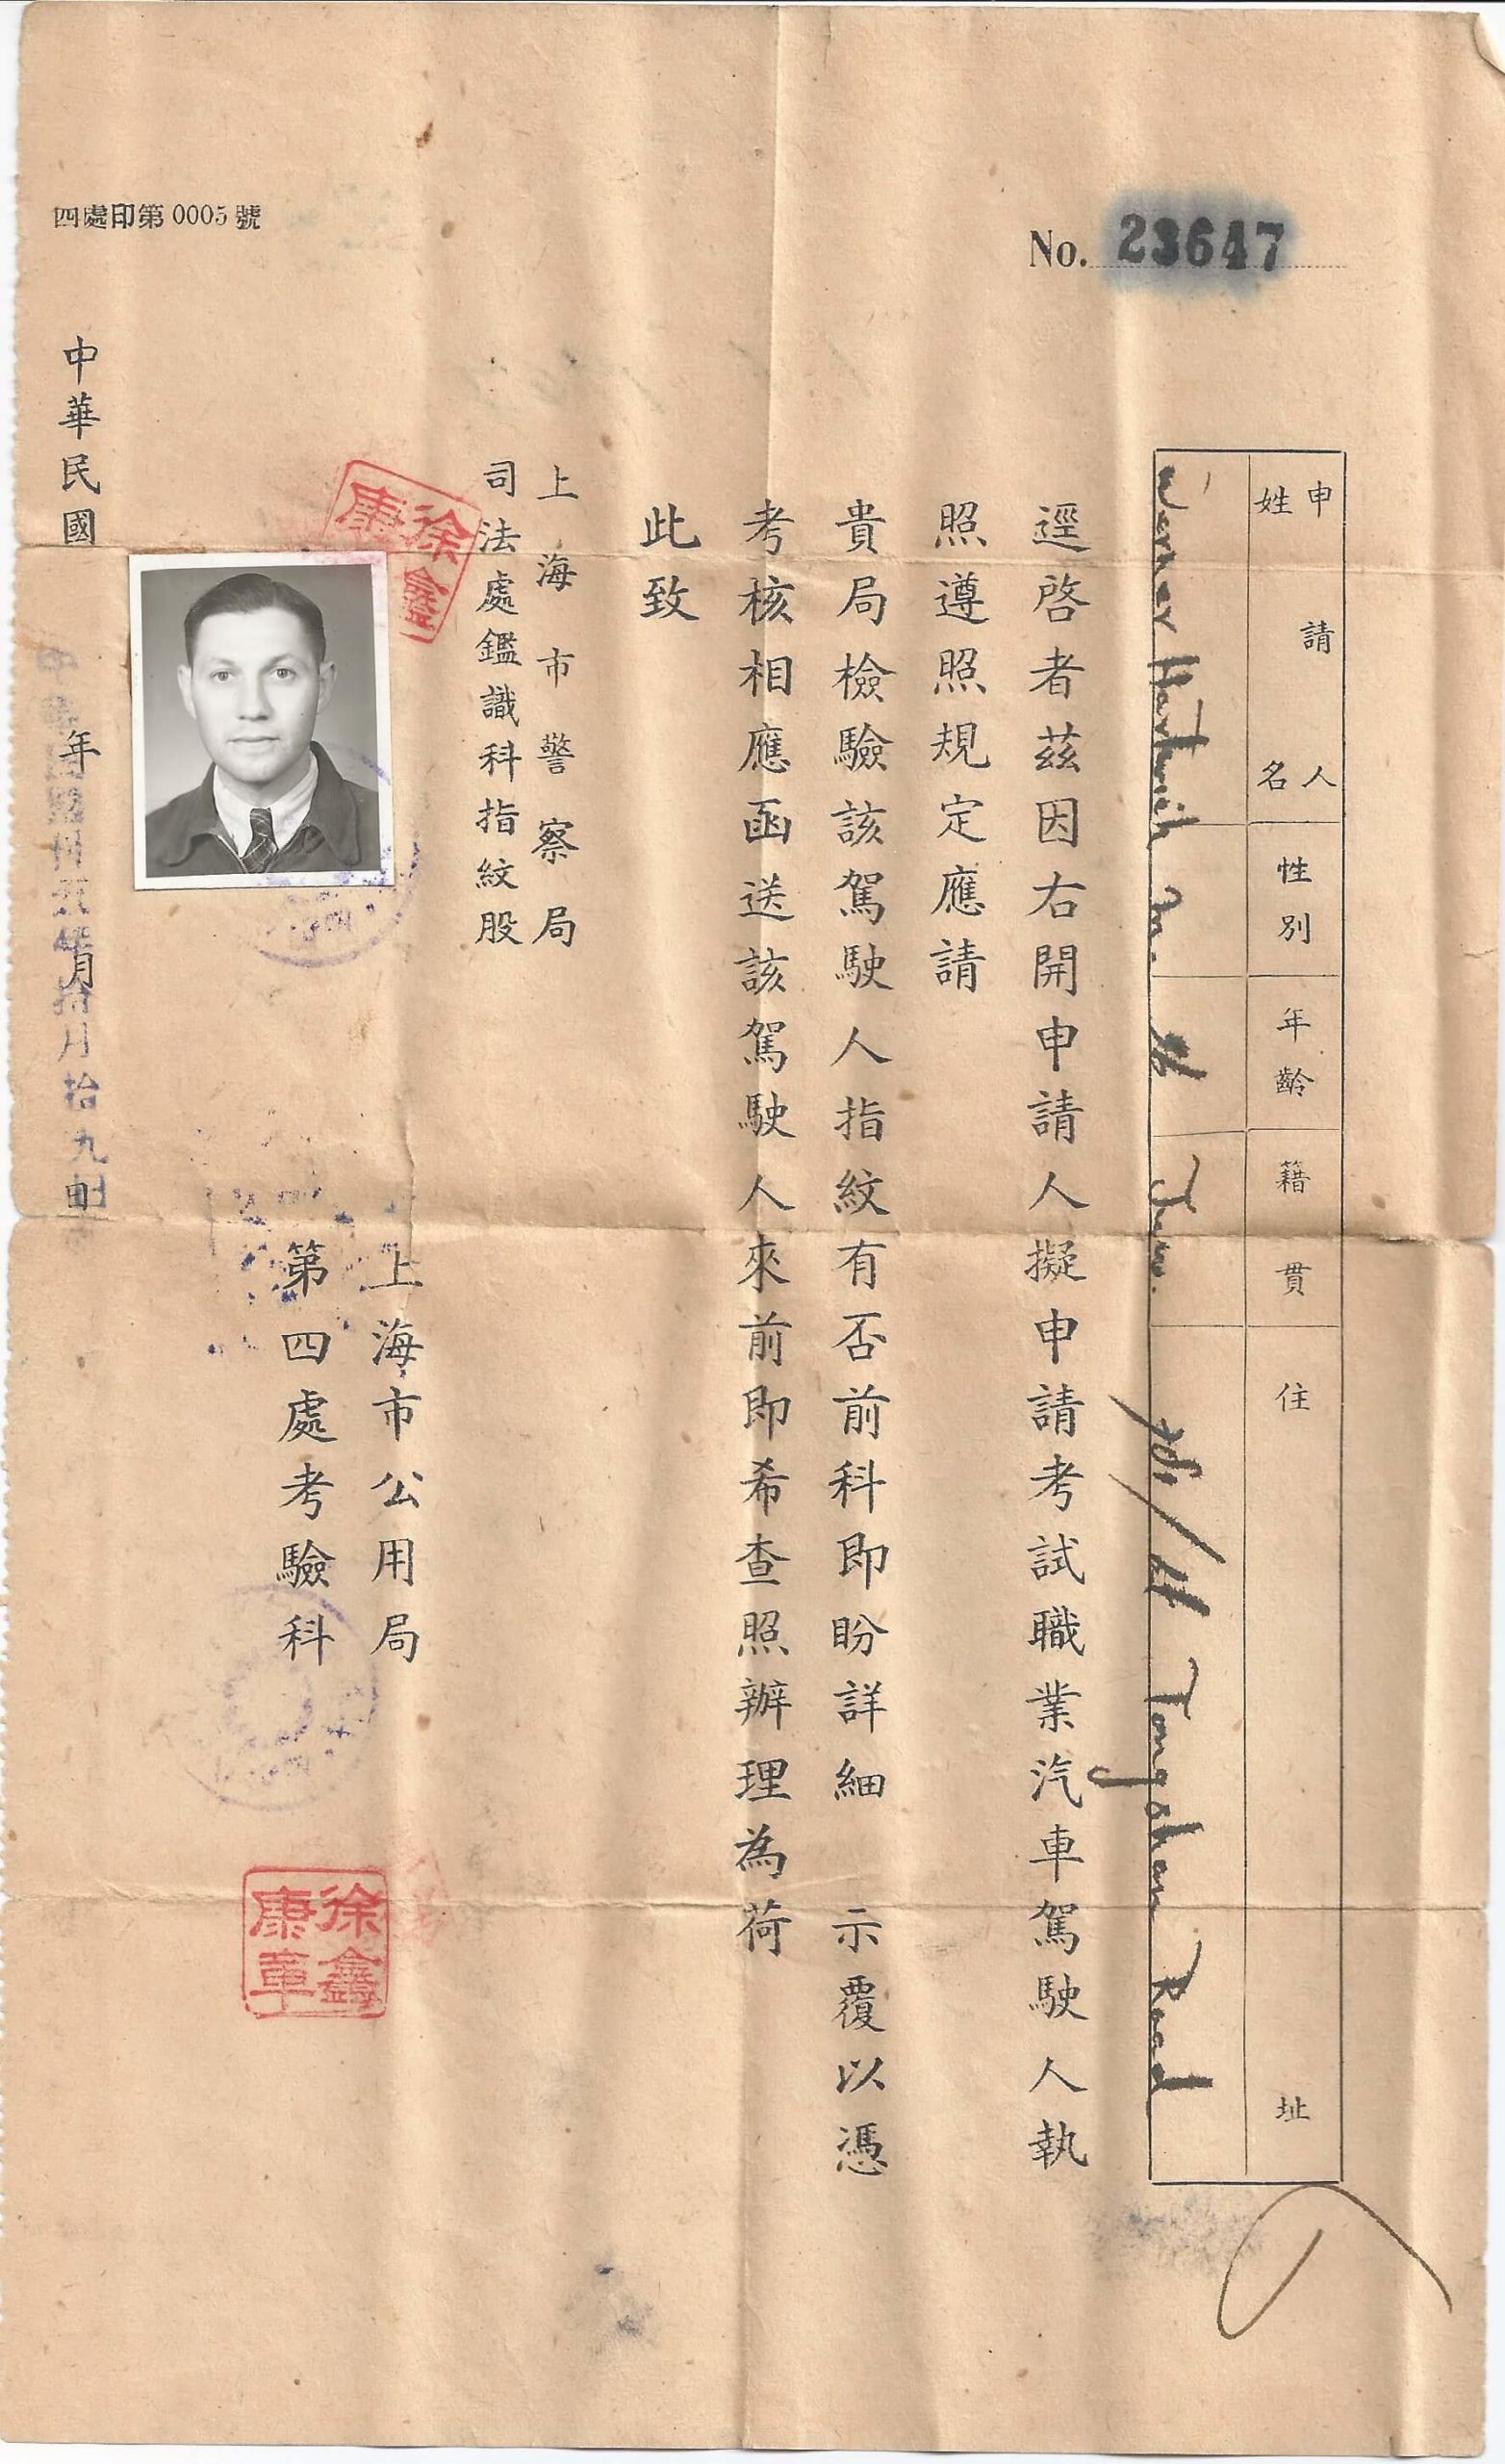 四處印第0005號
No. 23647
申請人
姓名
性別
年齡
籍貫
住址
Werner Hartwich
M.
Jew.
Tongshan Road
逕啓者茲因右開申請人擬申請考試職業汽車駕駛人執
照遵照規定應請
貴局檢驗該駕駛人指紋有否前科即盼詳細 示覆以憑
考核相應函送該駕駛人來前即希查照辦理為荷
此致
上海市警察局
司法處鑑識科指紋股
徐鑫康
上海市公用局
第四處考驗科
徐鑫康章
中華民國 年 月
拾月拾九